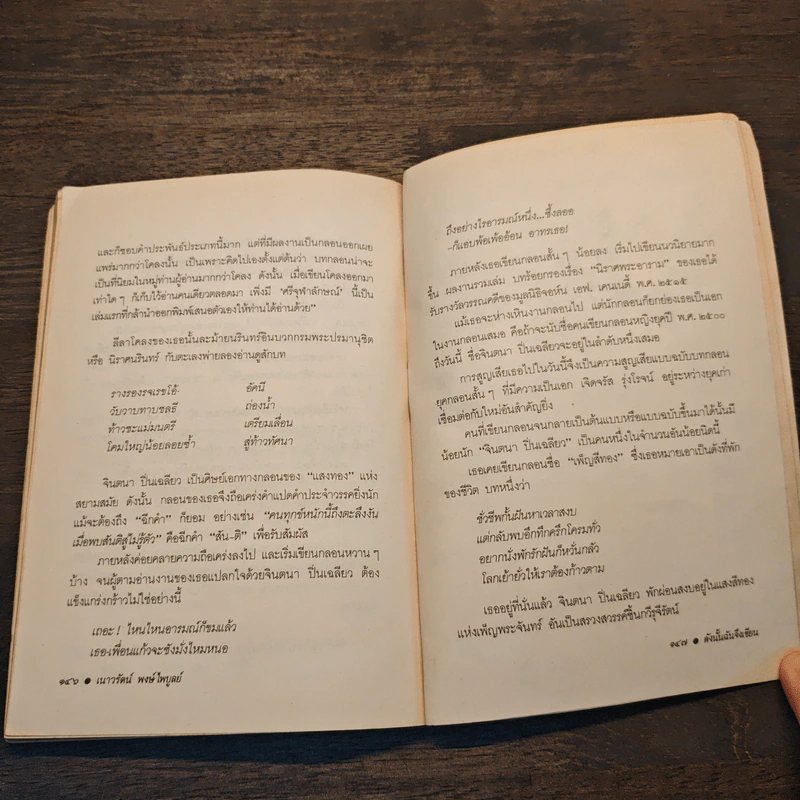 และก็ชอบคำประพันธ์ประเภทนี้มาก แต่ที่มีผลงานเป็นกลอนออกเผย
แพร่มากกว่าโคลงนั้น เป็นเพราะคิดไปเองตั้งแต่ต้นว่า บทกลอนน่าจะ
เป็นที่นิยมในหมู่ท่านผู้อ่านมากกว่าโคลง ดังนั้น เมื่อเขียนโคลงออกมา
เท่าใด ๆ ก็เก็บไว้อ่านคนเดียวตลอดมา เพิ่งมี 'ศรีจุฬาลักษณ์' นี้เป็น
เล่มแรกที่กล้านำออกพิมพ์เสนอตัวเองให้ท่านได้อ่านด้วย"
ลีลาโคลงของเธอนั้นละม้ายนรินทร์อินบวกกรมพระปรมานุชิต
หรือ นิราศนรินทร์ กับตะเลงพ่ายลองอ่านดูสักบท
รางรองรจเรขโอ้- อัคนี
วับวาบทาบชลธี ถ่องน้ำ
ท้าวชะแม่มนตรี เตรียมเลื่อน
โคมใหญ่น้อยลอยซ้ำ สู่ท้าวทัศนา
จินตนา ปิ่นเฉลียว เป็นศิษย์เอกทางกลอนของ "แสงทอง" แห่ง
สยามสมัย ดังนั้น กลอนของเธอจึงถือเคร่งคำแปดคำประจำวรรคยิ่งนัก
แม้จะต้องถึง "ฉีกคำ" ก็ยอม อย่างเช่น "คนทุกข์หนักนี้ถึงตะลึงงัน
เมื่อพบสันติสู่ไม่รู้ตัว" คือฉีกคำ "สัน-ติ" เพื่อรับสัมผัส
ภายหลังค่อยคลายความถือเคร่งลงไป และเริ่มเขียนกลอนหวาน ๆ
บ้าง จนผู้ตามอ่านงานของเธอแปลกใจด้วยจินตนา ปิ่นเฉลียว ต้อง
แข็งแกร่งกร้าวไม่ใช่อย่างนี้
เถอะ ! ไหนไหนอารมณ์ก็ขมแล้ว
เธอ-เพื่อนแก้วจะชังมั่งไหมหนอ
๑๔๖ ● เนาวรัตน์ พงษ์ไพบูลย์
ถึงอย่างไรอารมณ์หนึ่ง...ซึ้งลออ
-ก็แอบพ้อเพ้ออ้อน อาทรเธอ!
ภายหลังเธอเขียนกลอนสั้น ๆ น้อยลง เริ่มไปเขียนนวนิยายมาก
ขึ้น ผลงานรวมเล่ม บทร้อยกรองเรื่อง "นิราศพระอาราม" ของเธอได้
รับรางวัลวรรณคดีของมูลนิธิจอห์น เอฟ. เคนเนดี้ พ.ศ. ๒๕๑๕
แม้เธอจะห่างเหินงานกลอนไป แต่นักกลอนก็ยกย่องเธอเป็นเอก
ในงานกลอนเสมอ คือถ้าจะนับชื่อคนเขียนกลอนหญิงยุคปี พ.ศ. ๒๕๐๐
ถึงวันนี้ ชื่อจินตนา ปิ่นเฉลียวจะอยู่ในลำดับหนึ่งเสมอ
การสูญเสียเธอไปในวันนี้จึงเป็นความสูญเสียแบบฉบับบทกลอน
ยุคกลอนสั้น ๆ ที่มีความเป็นเอก เจิดจรัส รุ่งโรจน์ อยู่ระหว่างยุคเก่า
เชื่อมต่อกับใหม่อันสำคัญยิ่ง
คนที่เขียนกลอนจนกลายเป็นต้นแบบหรือแบบฉบับขึ้นมาได้นั้นมี
น้อยนัก "จินตนา ปิ่นเฉลียว" เป็นคนหนึ่งในจำนวนอันน้อยนิดนี้
เธอเคยเขียนกลอนชื่อ "เพ็ญสีทอง" ซึ่งเธอหมายเอาเป็นดังที่พัก
ของชีวิต บทหนึ่งว่า
ชั่วชีพกั้นฝันหาเวลาสงบ
แต่กลับพบอึกทึกครึกโครมทั่ว
อยากนั่งพักรักฝันก็หวั่นกลัว
โลกเย้ายั่วให้เราต้องก้าวตาม
เธออยู่ที่นั่นแล้ว จินตนา ปิ่นเฉลียว พักผ่อนสงบอยู่ในแสงสีทอง
แห่งเพ็ญพระจันทร์ อันเป็นสรวงสวรรค์ชั้นกวีรุจีรัตน์
๑๔๗ ● ดังนั้นฉันจึงเขียน